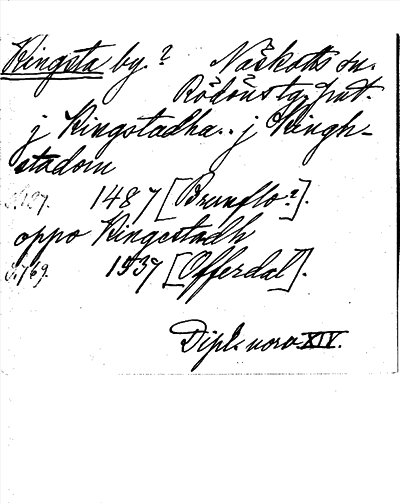 Kingsta by.? Näskotts sn.
Rödöns tg, Jmt.
j Kingstadha.. j Kingh-
stadom
S. 127. 1487 [Brunflo?].
oppo Kingestadh
S. 769. 1537 [Offerdal].
Dipl. norv. XIV.